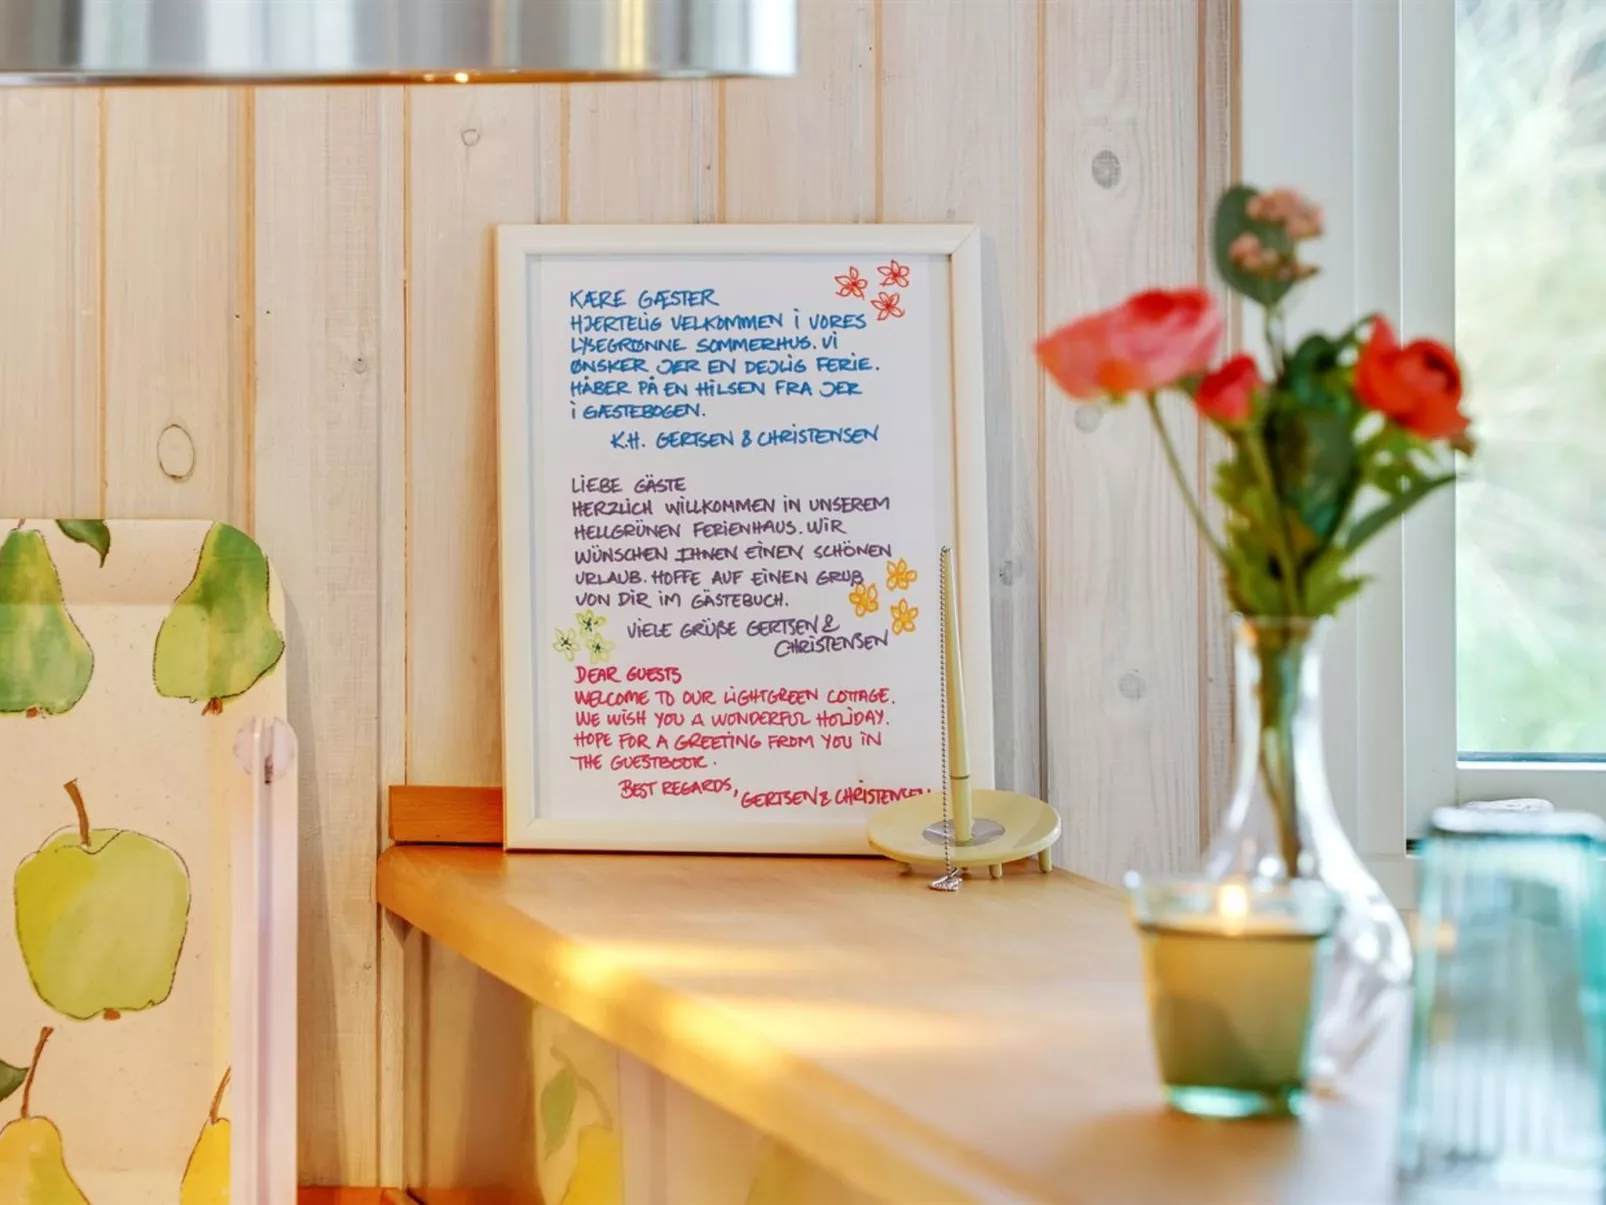 KÆRE GÆSTER
HJERTELIG VELKOMMEN I VORES
LYSEGRØNNE SOMMERHUS. VI
ØNSKER JER EN DEJLIG FERIE.
HÅBER PÅ EN HILSEN FRA JER
I GÆSTEBOGEN.
K.H. GERTSEN & CHRISTENSEN
LIEBE GÄSTE
HERZLICH WILLKOMMEN IN UNSEREM
HELLGRÜNEN FERIENHAUS. WIR
WÜNSCHEN IHNEN EINEN SCHÖNEN
URLAUB. HOFFE AUF EINEN GRUß
VON DIR IM GÄSTEBUCH.
VIELE GRÜßE GERTSEN &
CHRISTENSEN
DEAR GUESTS
WELCOME TO OUR LIGHTGREEN COTTAGE.
WE WISH YOU A WONDERFUL HOLIDAY.
HOPE FOR A GREETING FROM YOU IN
THE GUESTBOOK.
BEST REGARDS, GERTSEN & CHRISTENSEN